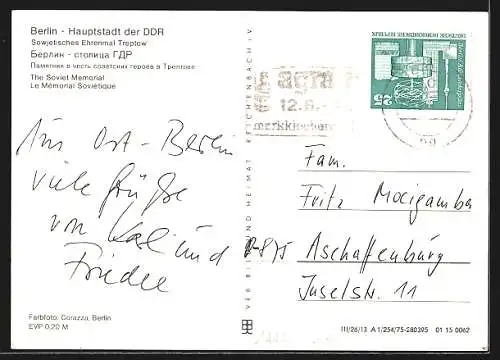 Berlin - Hauptstadt der DDR
Sowjetisches Ehrenmal Treptow
Берлин - столица ГДР
Памятник в честь советских героев в Трептове
The Soviet Memorial
Le Mémorial Soviétique
agra
12.6.-
markkleeberg
25
Aus Ost-Berlin
viele Grüße
von Kai und
Friedel
Fam.
Fritz Mocigamba
D-875 Aschaffenburg
Inselstr. 11
VEB BILD UND HEIMAT REICHENBACH I. V.
Farbfoto: Corazza, Berlin
EVP 0,20 M
III/26/13 A 1/254/75-280395 01 15 0062